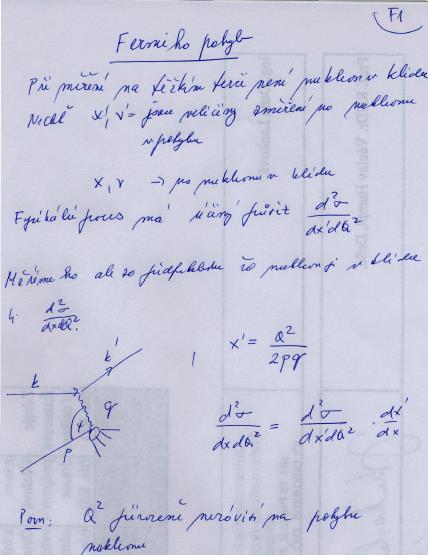 F1
Fermiho pohyb
Při měření na těžkém terči není nukleon v klidu
Nechť x', ν' = jsou veličiny změření po nukleonu
v pohybu
x, ν → po nukleonu v klidu
Fyzikální proces má účinný průřez d²σ/dx'dQ²
Měříme ho ale za předpokladu že nukleon je v klidu
tj. d²σ/dxdQ².
k'
k
x' = Q²/2pq
q
φ
p
d²σ/dxdQ² = d²σ/dx'dQ² · dx'/dx
Pozn: Q² přirozeně nezávisí na pohybu
nukleonu